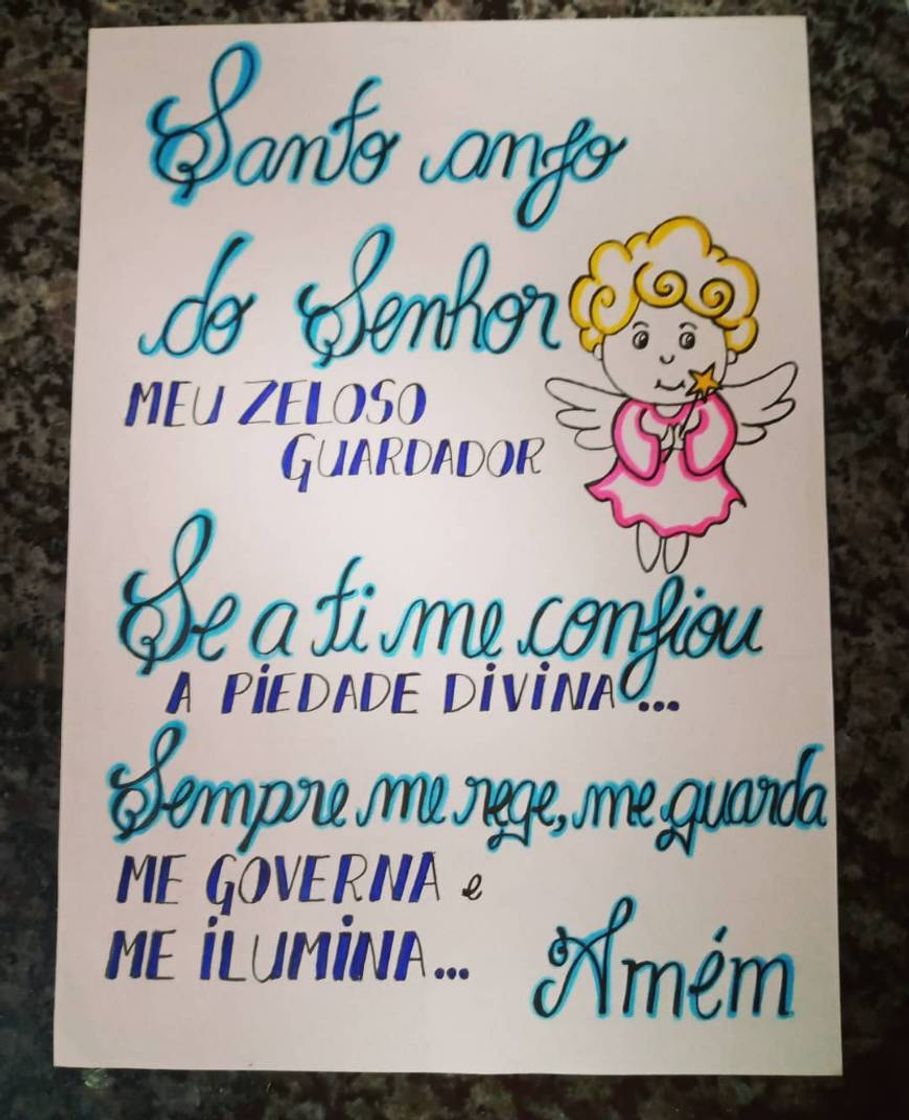 Santo anjo
do Senhor
MEU ZELOSO
GUARDADOR
Se a ti me confiou
A PIEDADE DIVINA...
Sempre me rege, me guarda
ME GOVERNA e
ME ILUMINA...
Amém